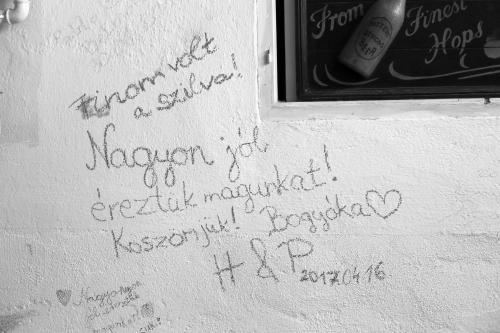 From Finest
Hops
Finom volt
a szilva!
Nagyon jól
éreztük magunkat!
Köszönjük! Bogyóka♡
H & P 2017.04.16
Nagyon